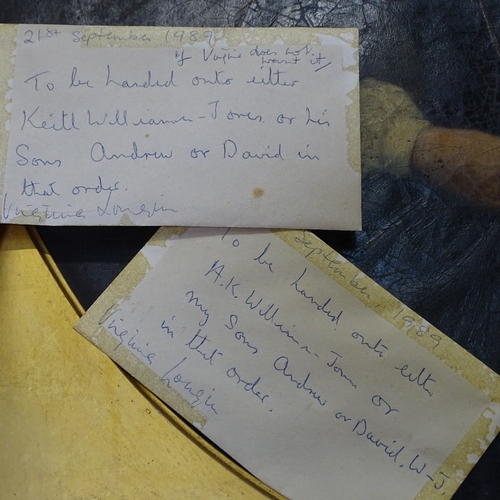 21st September 1989
if Virginia does not
want it,
To be handed onto either
Keith Williams-Jones or his
Sons Andrew or David in
that order.
Virginia
September 1989
To be handed onto either
A.K. Williams-Jones or
my Sons Andrew or David. W-J.
in that order.
Virginia